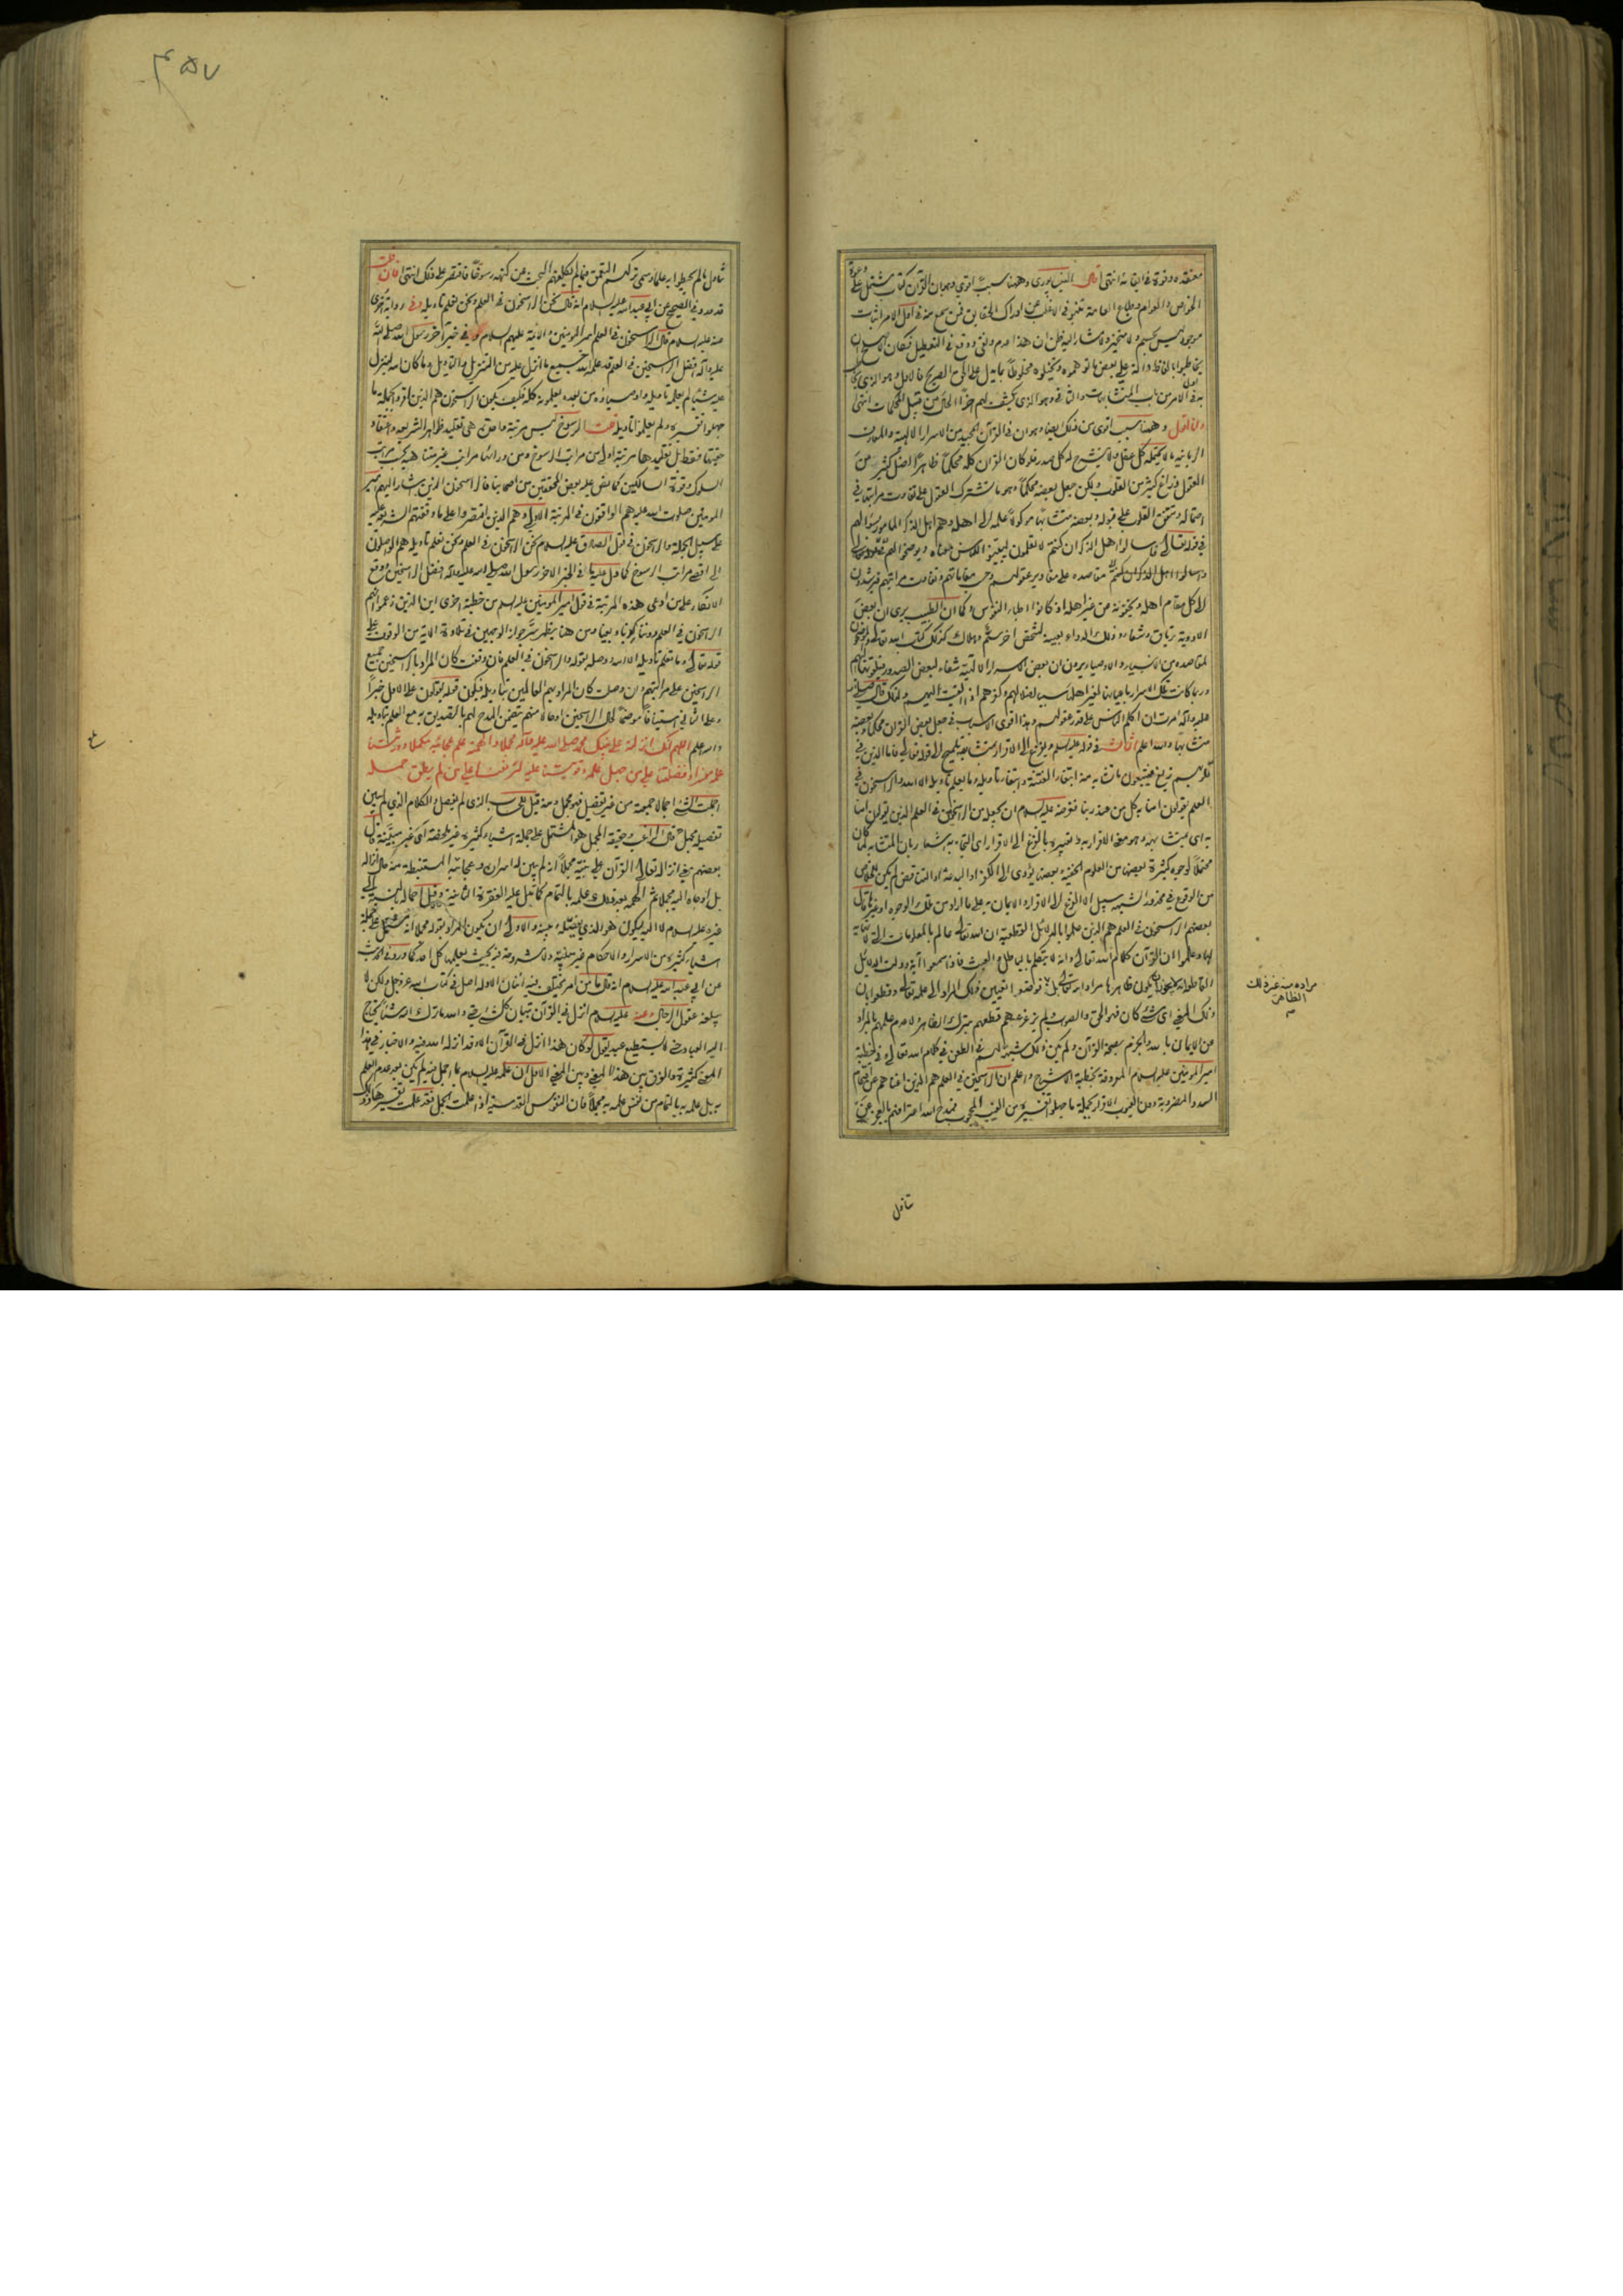 معتقده وقوة في ايقانه انتهى قال النيسابوري وههنا سبب اقوى وهو ان القرآن كتاب مشتمل على دعوة
الخواص والعوام وطباع العامة تنبو في الاغلب عن ادراك الحقايق فمن سمع منهم في اول الامر اثبات
موجود ليس بجسم ولا متحيز ولا مشار اليه ظن ان هذا عدم ونفي ووقع في التعطيل فكان الاصلح ان
يخاطبوا بالفاظ دالة على بعض ما توهموه وتخيلوه مخلوطا بما يدل على الحق الصريح فالاول وهو الذي يخاطب
به في اول الامر من باب المتشابهات والثاني وهو الذي يكشف لهم آخر الحال من قبيل المحكمات انتهى
وانا اقول وههنا سبب اقوى من ذلك ايضا وهو ان في القرآن المجيد من الاسرار الالهية والمعارف
الربانية ما لا يحتمله كل عقل ولا ينشرح له كل صدر فلو كان القرآن كله محكما ظاهرا لضل كثير من
العقول وزاغ كثير من القلوب ولكن جعل بعضه محكما وهو ما تشترك العقول على تفاوت مراتبها في
احتماله وتتفق القلوب على قبوله وبعضه متشابها موكولا علمه الى اهله وهم اهل الذكر المامور بسؤالهم
في قوله تعالى فاسألوا اهل الذكر ان كنتم لا تعلمون ليبينوا للناس معناه ويوضحوا لهم
مقاصده على مقادير عقولهم وحسب مقاماتهم وتفاوت مراتبهم فيرشدون
الى كل مقام اهله ويخزنونه من غير اهله اذ كانوا اطباء النفوس وكما ان الطبيب يرى ان بعض
الادوية ترياق وشفاء وذلك الدواء بعينه لشخص آخر سم وهلاك كذلك كتاب الله تعالى والموضحون
لمقاصده من الانبياء والاوصياء يرون ان بعض الاسرار الالهية شفاء لبعض الصدور فيلقونها اليهم
وربما كانت تلك الاسرار باعيانها لغير اهلها سببا لضلالهم وكفرهم اذا القيت اليهم ولذلك قال صلى الله
عليه وآله امرت ان اكلم الناس على قدر عقولهم وهذا اقوى الاسباب في جعل بعض القرآن محكما وبعضه
متشابها والله اعلم الثالث في قوله عليه السلام ويفزع الى الاقرار بمتشابهه تلميح الى قوله تعالى فاما الذين في
قلوبهم زيغ فيتبعون ما تشابه منه ابتغاء الفتنة وابتغاء تاويله وما يعلم تاويله الا الله والراسخون في
العلم يقولون آمنا به كل من عند ربنا فغرضه عليه السلام ان يجعله من الراسخين في العلم الذين يقولون آمنا
به اى بمتشابهه وهو معنى الاقرار به وتعبيره بالفزع الى الاقرار اى التجاء به اشعار بان المتشابه لما كان
محتملا لوجوه كثيرة بعضها من العلوم الخفية وبعضها يؤدى الى الكفر او البدعة او التناقض لم يكن للخلاص
من الوقوع في محذور الشبهة سبيل الا الفزع الى الاقرار والايمان به على ما اراد من تلك الوجوه او غيرها قال
بعضهم الراسخون في العلم هم الذين علموا بالدلائل القطعية ان الله تعالى عالم بالمعلومات التي لا نهاية
لها وعلموا ان القرآن كلام الله تعالى وانه لا يتكلم بالباطل والعبث فاذا سمعوا آية ودلت الدلائل
القاطعة على انه لا يجوز ان يكون ظاهرها مراد الله تعالى بل فوضوا تعيين ذلك المراد الى علمه تعالى وقطعوا بان
مراده منه غير ذلك الظاهر
ذلك المعنى اى شئ كان فهو الحق والصواب ولم يزعزعهم قطعهم بترك الظاهر ولا عدم علمهم بالمراد
عن الايمان بالله والجزم بصحة القرآن ولم يكن ذلك شبهة لهم في الطعن في كلام الله تعالى وفي خطبة
امير المؤمنين عليه السلام المعروفة بخطبة الاشباح واعلم ان الراسخين في العلم هم الذين اغناهم عن اقتحام
السدد المضروبة دون الغيوب الاقرار بجملة ما جهلوا تفسيره من الغيب المحجوب فمدح الله اعترافهم بالعجز عن
تناول
٤٥٧
تناول ما لم يحيطوا به علما وسمى تركهم التعمق فيما لم يكلفهم البحث عن كنهه رسوخا فاقتصر على ذلك انتهى فان قلت
قد ورد في الصحيح عن ابي عبد الله عليه السلام انه قال نحن الراسخون في العلم ونحن نعلم تاويله وفي رواية اخرى
عنه عليه السلام قال الراسخون في العلم امير المؤمنين والائمة عليهم السلام وفي خبر آخر رسول الله صلى الله
عليه وآله افضل الراسخين في العلم قد علمه الله جميع ما انزل عليه من التنزيل والتاويل وما كان الله لينزل
عليه شيئا لم يعلمه تاويله واوصياؤه من بعده يعلمونه كله فكيف يكون الراسخون هم الذين اقروا بجملة ما
جهلوا تفسيره ولم يعلموا تاويله قلت الرسوخ ليس مرتبة واحدة هي تقليد ظاهر الشريعة واعتقاد
حقيتها فقط بل تقليدها مرتبة اولى من مراتب الرسوخ ومن ورائها مراتب غير متناهية بحسب مراتب
السلوك وقوة السالكين كما نص عليه بعض المحققين من اصحابنا فالراسخون الذين اشار اليهم امير
المؤمنين صلوات الله عليه هم الواقفون في المرتبة الاولى وهم الذين اقتصروا على ما وقفتهم الشريعة عليه
على سبيل الجملة والراسخون في قول الصادق عليه السلام نحن الراسخون في العلم ونحن نعلم تاويله هم الواصلون
الى اقصى مراتب الرسوخ كما دل عليه ما في الخبر الاخر رسول الله صلى الله عليه وآله افضل الراسخين ووقع
الانكار على من ادعى هذه المرتبة في قول امير المؤمنين عليه السلام من خطبة اخرى اين الذين زعموا انهم
الراسخون في العلم دوننا كذبا وبغيا ومن هنا يظهر سر جواز الوجهين في تلاوة الآية من الوقف على
قوله تعالى وما يعلم تاويله الا الله ووصله بقوله والراسخون في العلم فان وقفت كان المراد بالراسخين جميع
الراسخين على مراتبهم وان وصلت كان المراد بهم العالمين بتاويله فيكون قوله يقولون على الاول خبرا
وعلى الثاني استينافا موضحا لحال الراسخين او حالا منهم يتضمن المدح لهم بالتصديق به مع العلم بتاويله
والله اعلم اللهم انك انزلته على نبيك محمد صلى الله عليه وآله مجملا والهمته علم عجائبه مكملا وورثتنا
علمه مفسرا وفضلتنا على من جهل علمه وقويتنا عليه لترفعنا على من لم يطق حمله
اجملت الشئ اجمالا جمعته من غير تفصيل فهو مجمل ومنه قيل للحساب الذي لم يفصل والكلام الذي لم يبين
تفصيله مجمل قال الراغب وحقيقة المجمل هو المشتمل على جملة اشياء كثيرة غير ملخصة اى غير مبينة قال
بعضهم معنى انزاله تعالى القرآن على نبيه مجملا انه لم يبين له اسراره وعجائبه المستنبطة منه حال انزاله
بل اوحاه اليه مجملا ثم الهمه بعد ذلك علمه بالتمام كما تدل عليه الفقرة الثانية وقيل اجماله بالنسبة الى
غيره عليه السلام لا اليه ليكون هو الذي يفصله ويبينه والاولى ان يكون المراد بقوله مجملا انه مشتمل على جملة
اشياء كثيرة من الاسرار والاحكام غير مبينة ولا مشروحة فيه بحيث يعلمها كل احد كما ورد في الحديث
عن ابي عبد الله عليه السلام انه قال ما من امر يختلف فيه اثنان الا وله اصل في كتاب الله عز وجل ولكن لا
يبلغه عقول الرجال وعنه عليه السلام انزل في القرآن تبيان كل شئ حتى والله ما ترك الله شيئا يحتاج
اليه العباد حتى لا يستطيع عبد يقول لو كان هذا انزل في القرآن الا وقد انزله الله فيه والاخبار في هذا
المعنى كثيرة والفرق بين هذا المعنى وبين المعنى الاول ان علمه عليه السلام بما اجمل فيه لم يكن بعد عدم العلم
به بل علمه به بالتمام من نفس علمه به مجملا فان النفوس القدسية اذا علمت المجمل فقد علمت تفسيره